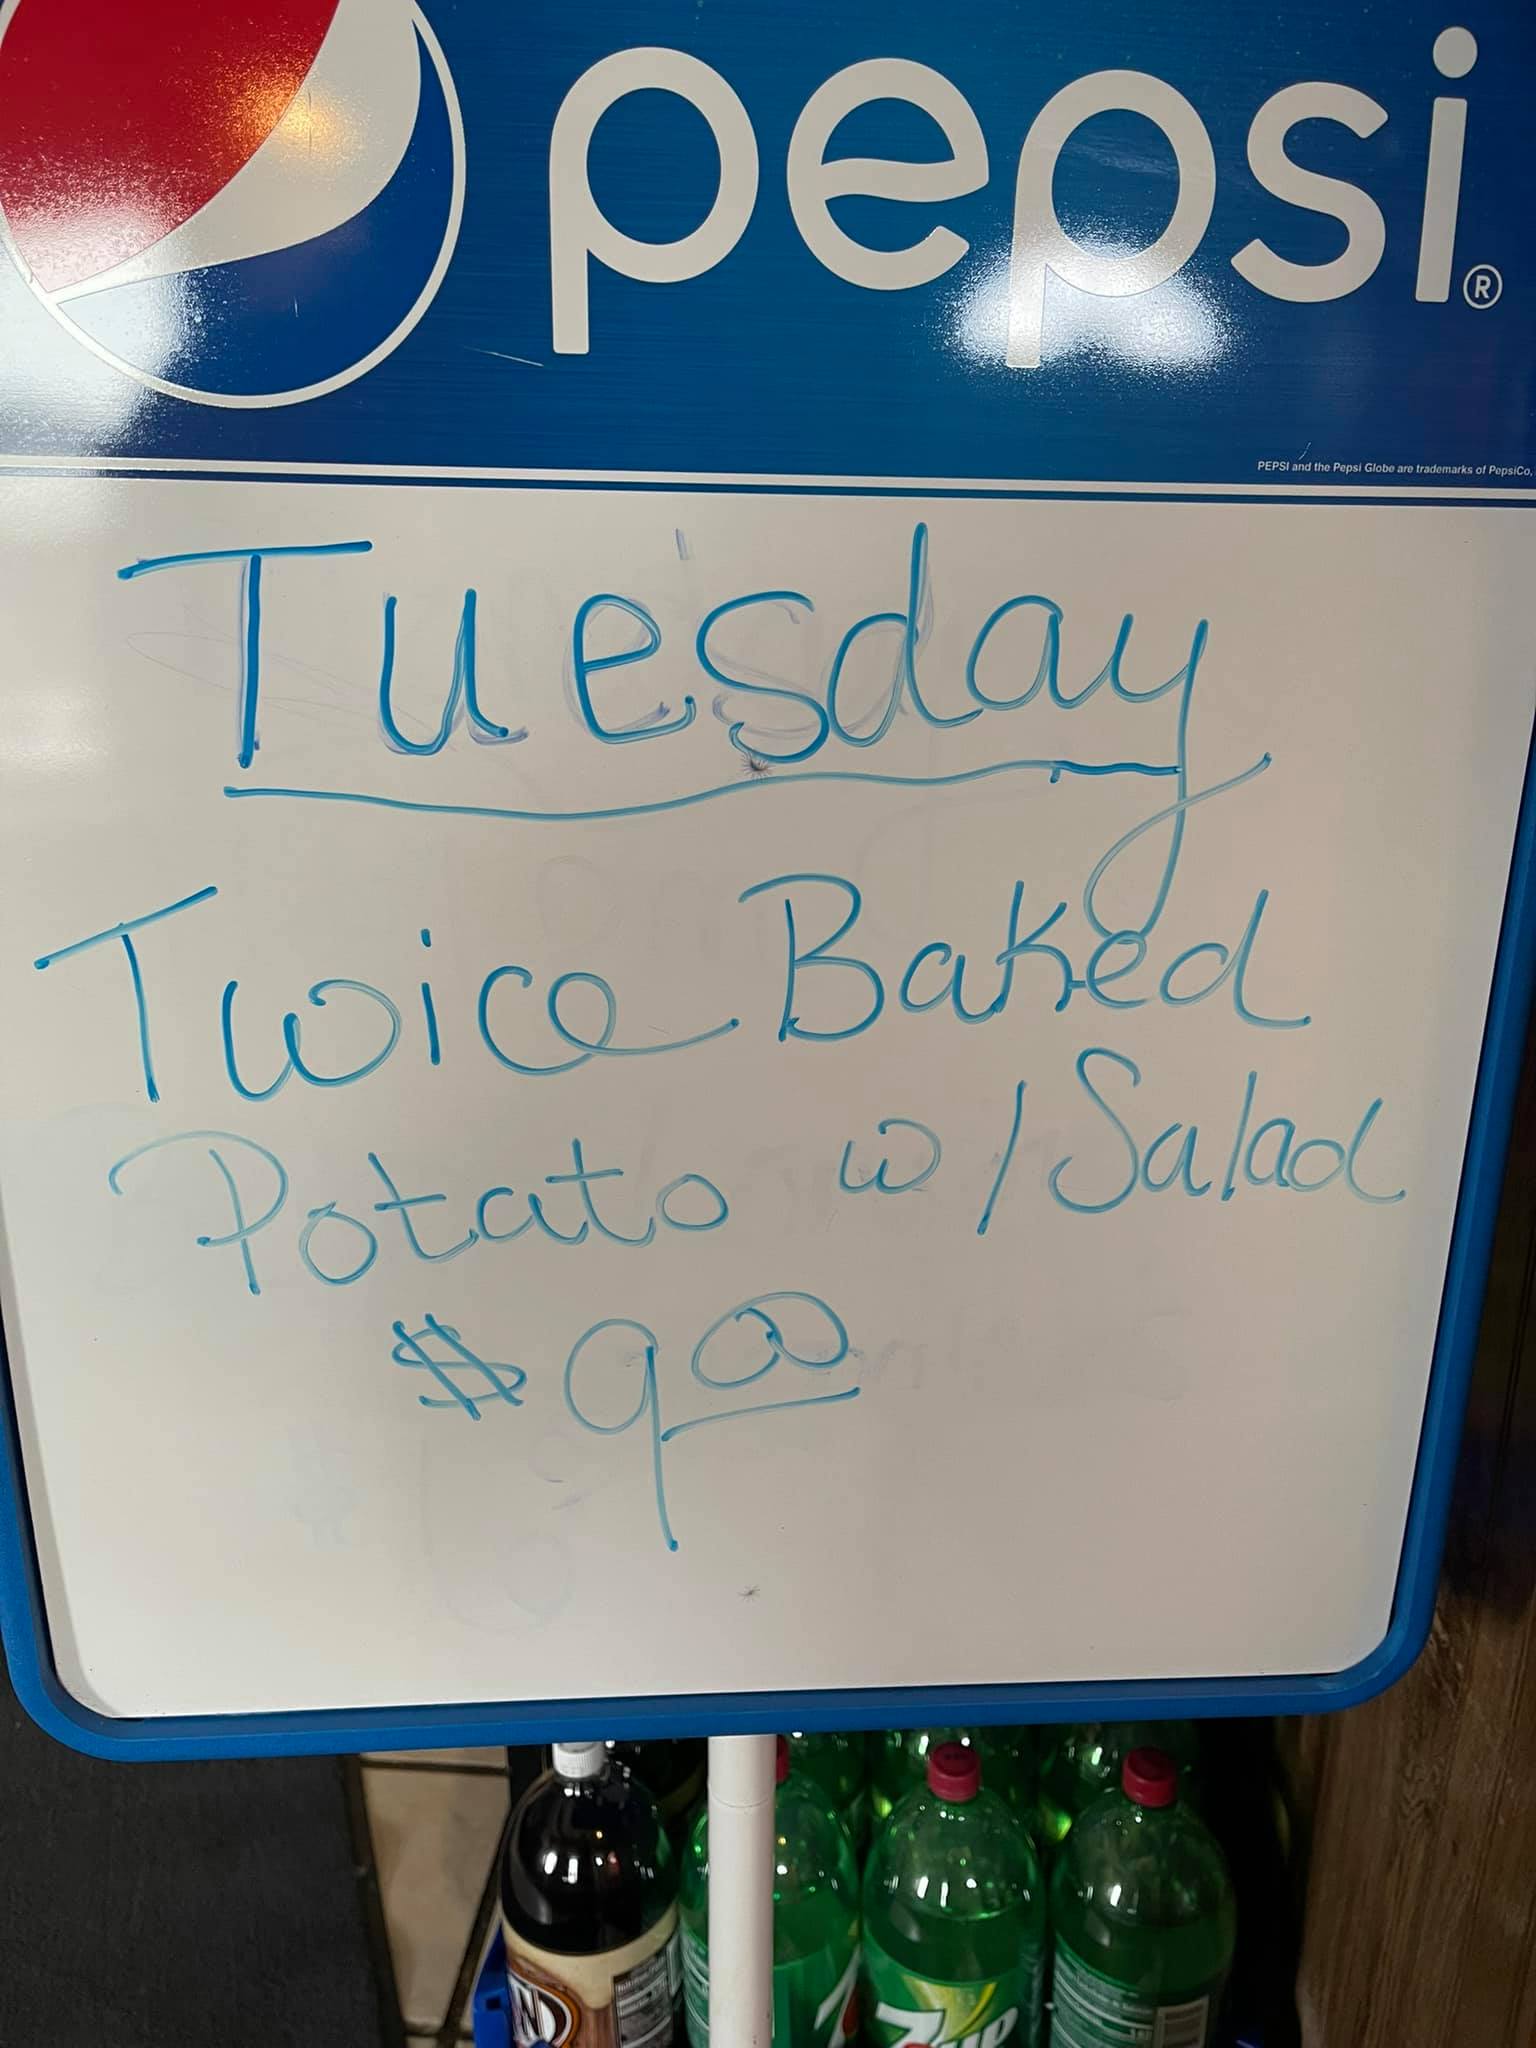 pepsi®
PEPSI and the Pepsi Globe are trademarks of PepsiCo,
Tuesday
Twice Baked
Potato w/Salad
$9.00
7up